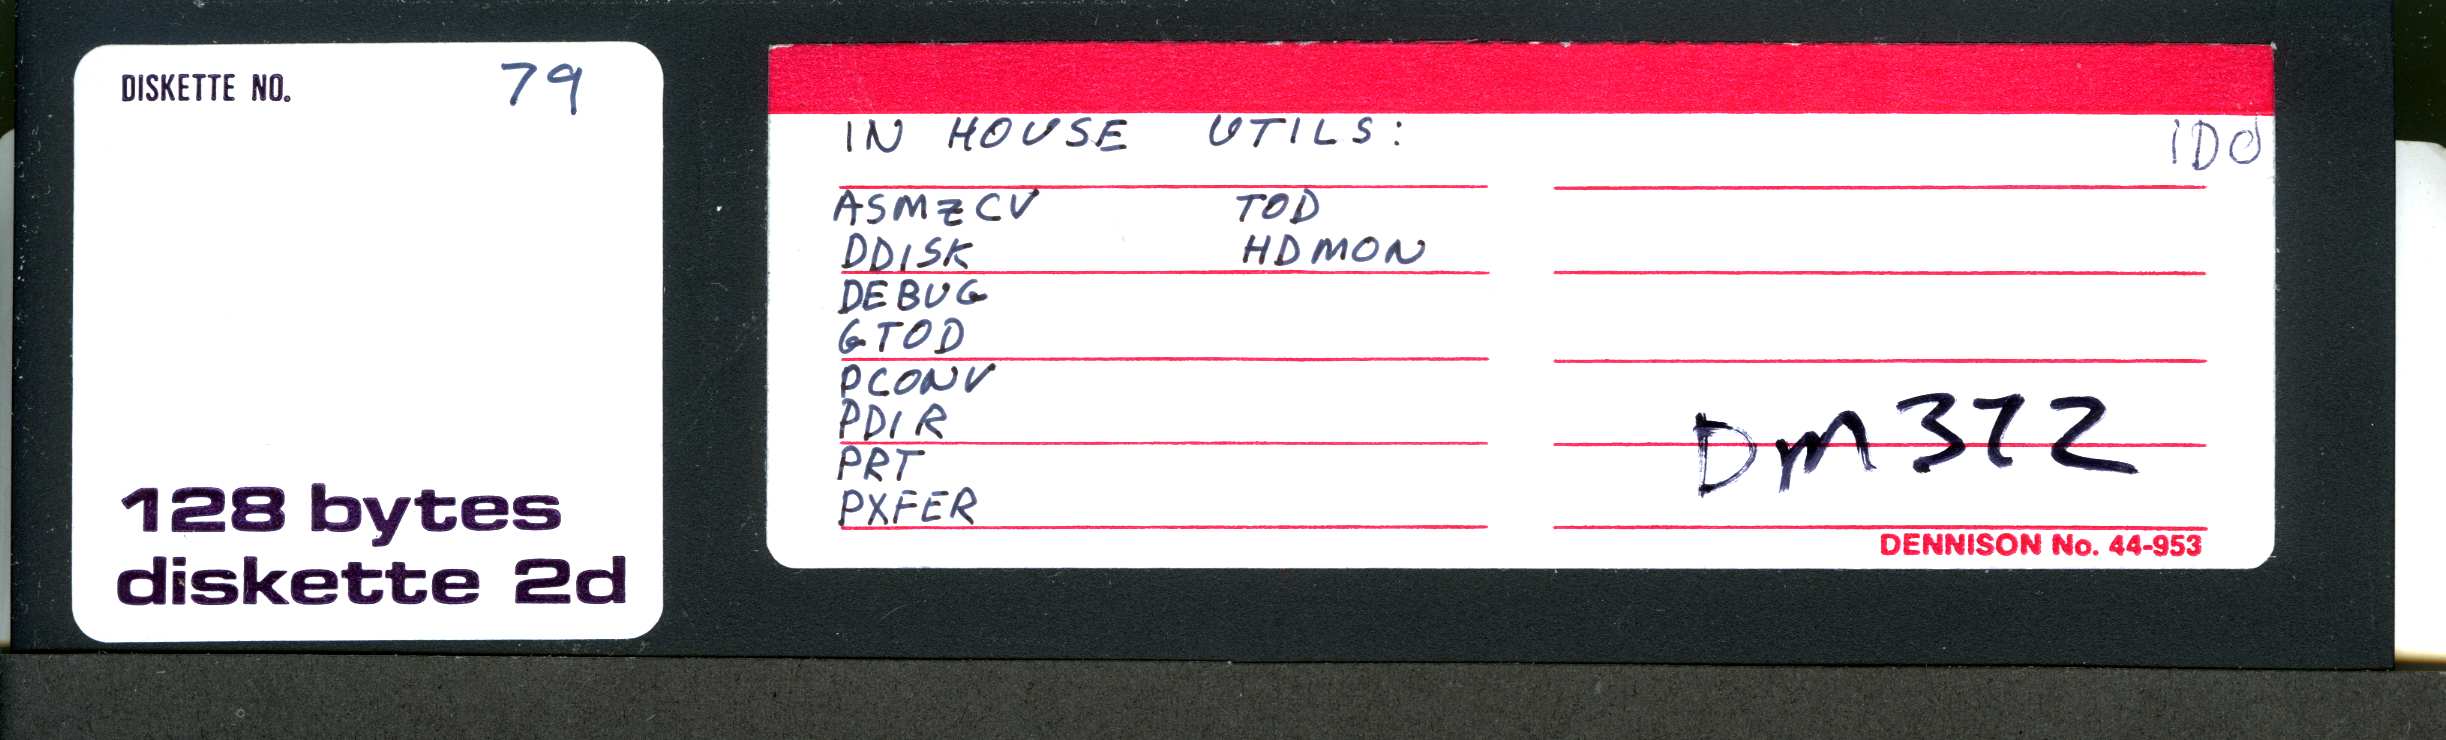 DISKETTE NO. 79
128 bytes
diskette 2d
IN HOUSE UTILS:
ASMZCV TOD
DDISK HDMON
DEBUG
GTOD
PCONV
PDIR
PRT
PXFER
DM372
DENNISON No. 44-953